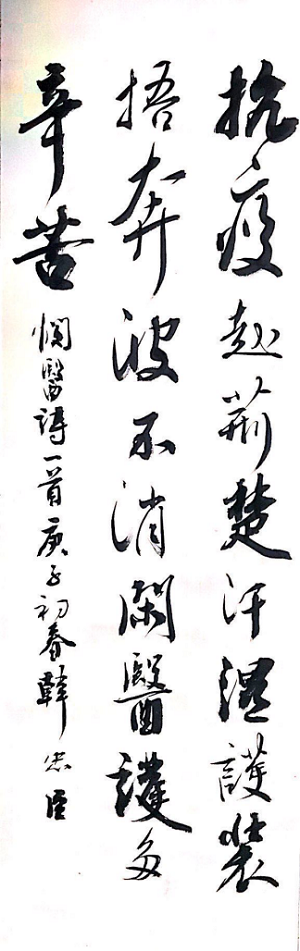 抗疫赴荆楚汗湿護裝
捂奔波不消閑醫護多
辛苦 憫醫詩一首庚子初春韓忠臣